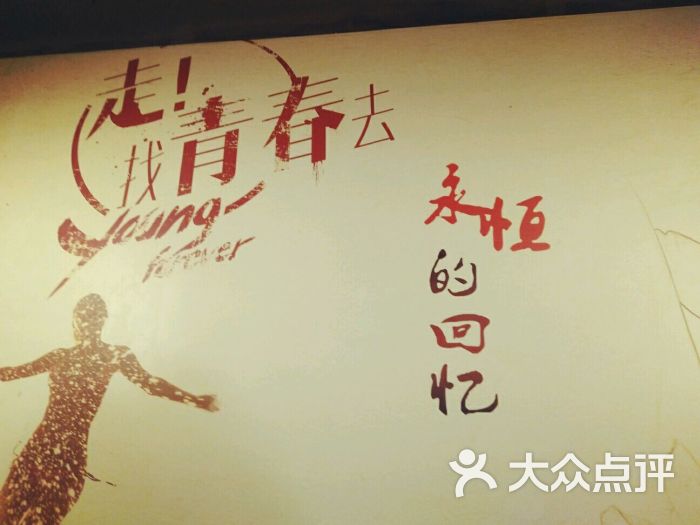 走！
找青春去
Young
forever
永恒
的
回
忆
大众点评